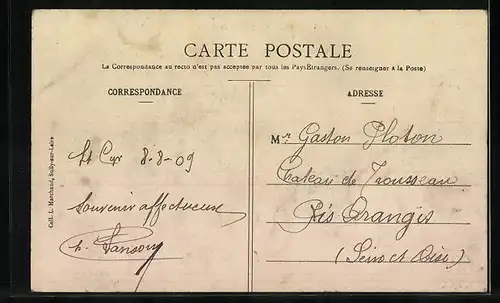 CARTE POSTALE
La Correspondance au recto n'est pas acceptée par tous les Pays Étrangers. (Se renseigner à la Poste)
CORRESPONDANCE
St Cyr 8-8-09
Souvenir affectueux
h. Sanson
ADRESSE
Mr Gaston Ploton
Cateau de Trousseau
Ris Orangis
(Seine et Oise)
Coll. L. Marchand, Sully-sur-Loire